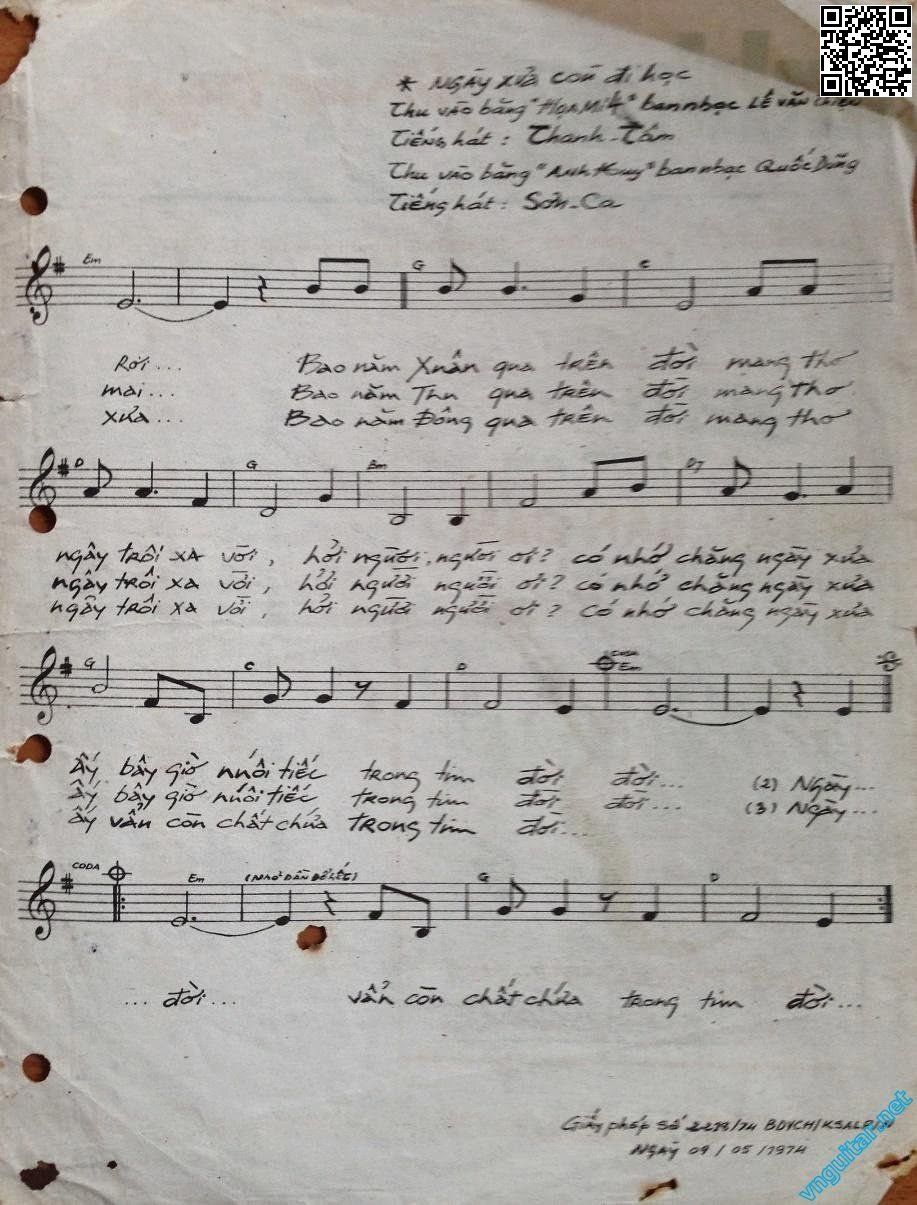 * Ngày xưa còn đi học
Thu vào băng "Họa Mi 4" ban nhạc LÊ VĂN
Tiếng hát : Thanh-Tâm
Thu vào băng "Anh Huy" ban nhạc Quốc Dũng
Tiếng hát : Sơn-Ca
Em G C
Rơi... Bao năm Xuân qua trên đời mang thơ
mai... Bao năm Thu qua trên đời mang thơ
xưa... Bao năm Đông qua trên đời mang thơ
D G Em D7
ngây trôi xa vời, hỡi người, người ơi? có nhớ chăng ngày xưa
ngây trôi xa vời, hỡi người người ơi? có nhớ chăng ngày xưa
ngây trôi xa vời, hỡi người người ơi? có nhớ chăng ngày xưa
G C D CODA Em
Ấy bây giờ nuối tiếc trong tim đời đời... (2) Ngày...
Ấy bây giờ nuối tiếc trong tim đời đời... (3) Ngày...
ấy vẫn còn chất chứa trong tim đời...
CODA Em (NHỎ DẦN ĐỂ HẾT) G D
... đời... vẫn còn chất chứa trong tim đời...
Giấy phép số /74 BDVCH/KSALP/
Ngày 09/05/1974
vnguitar.net